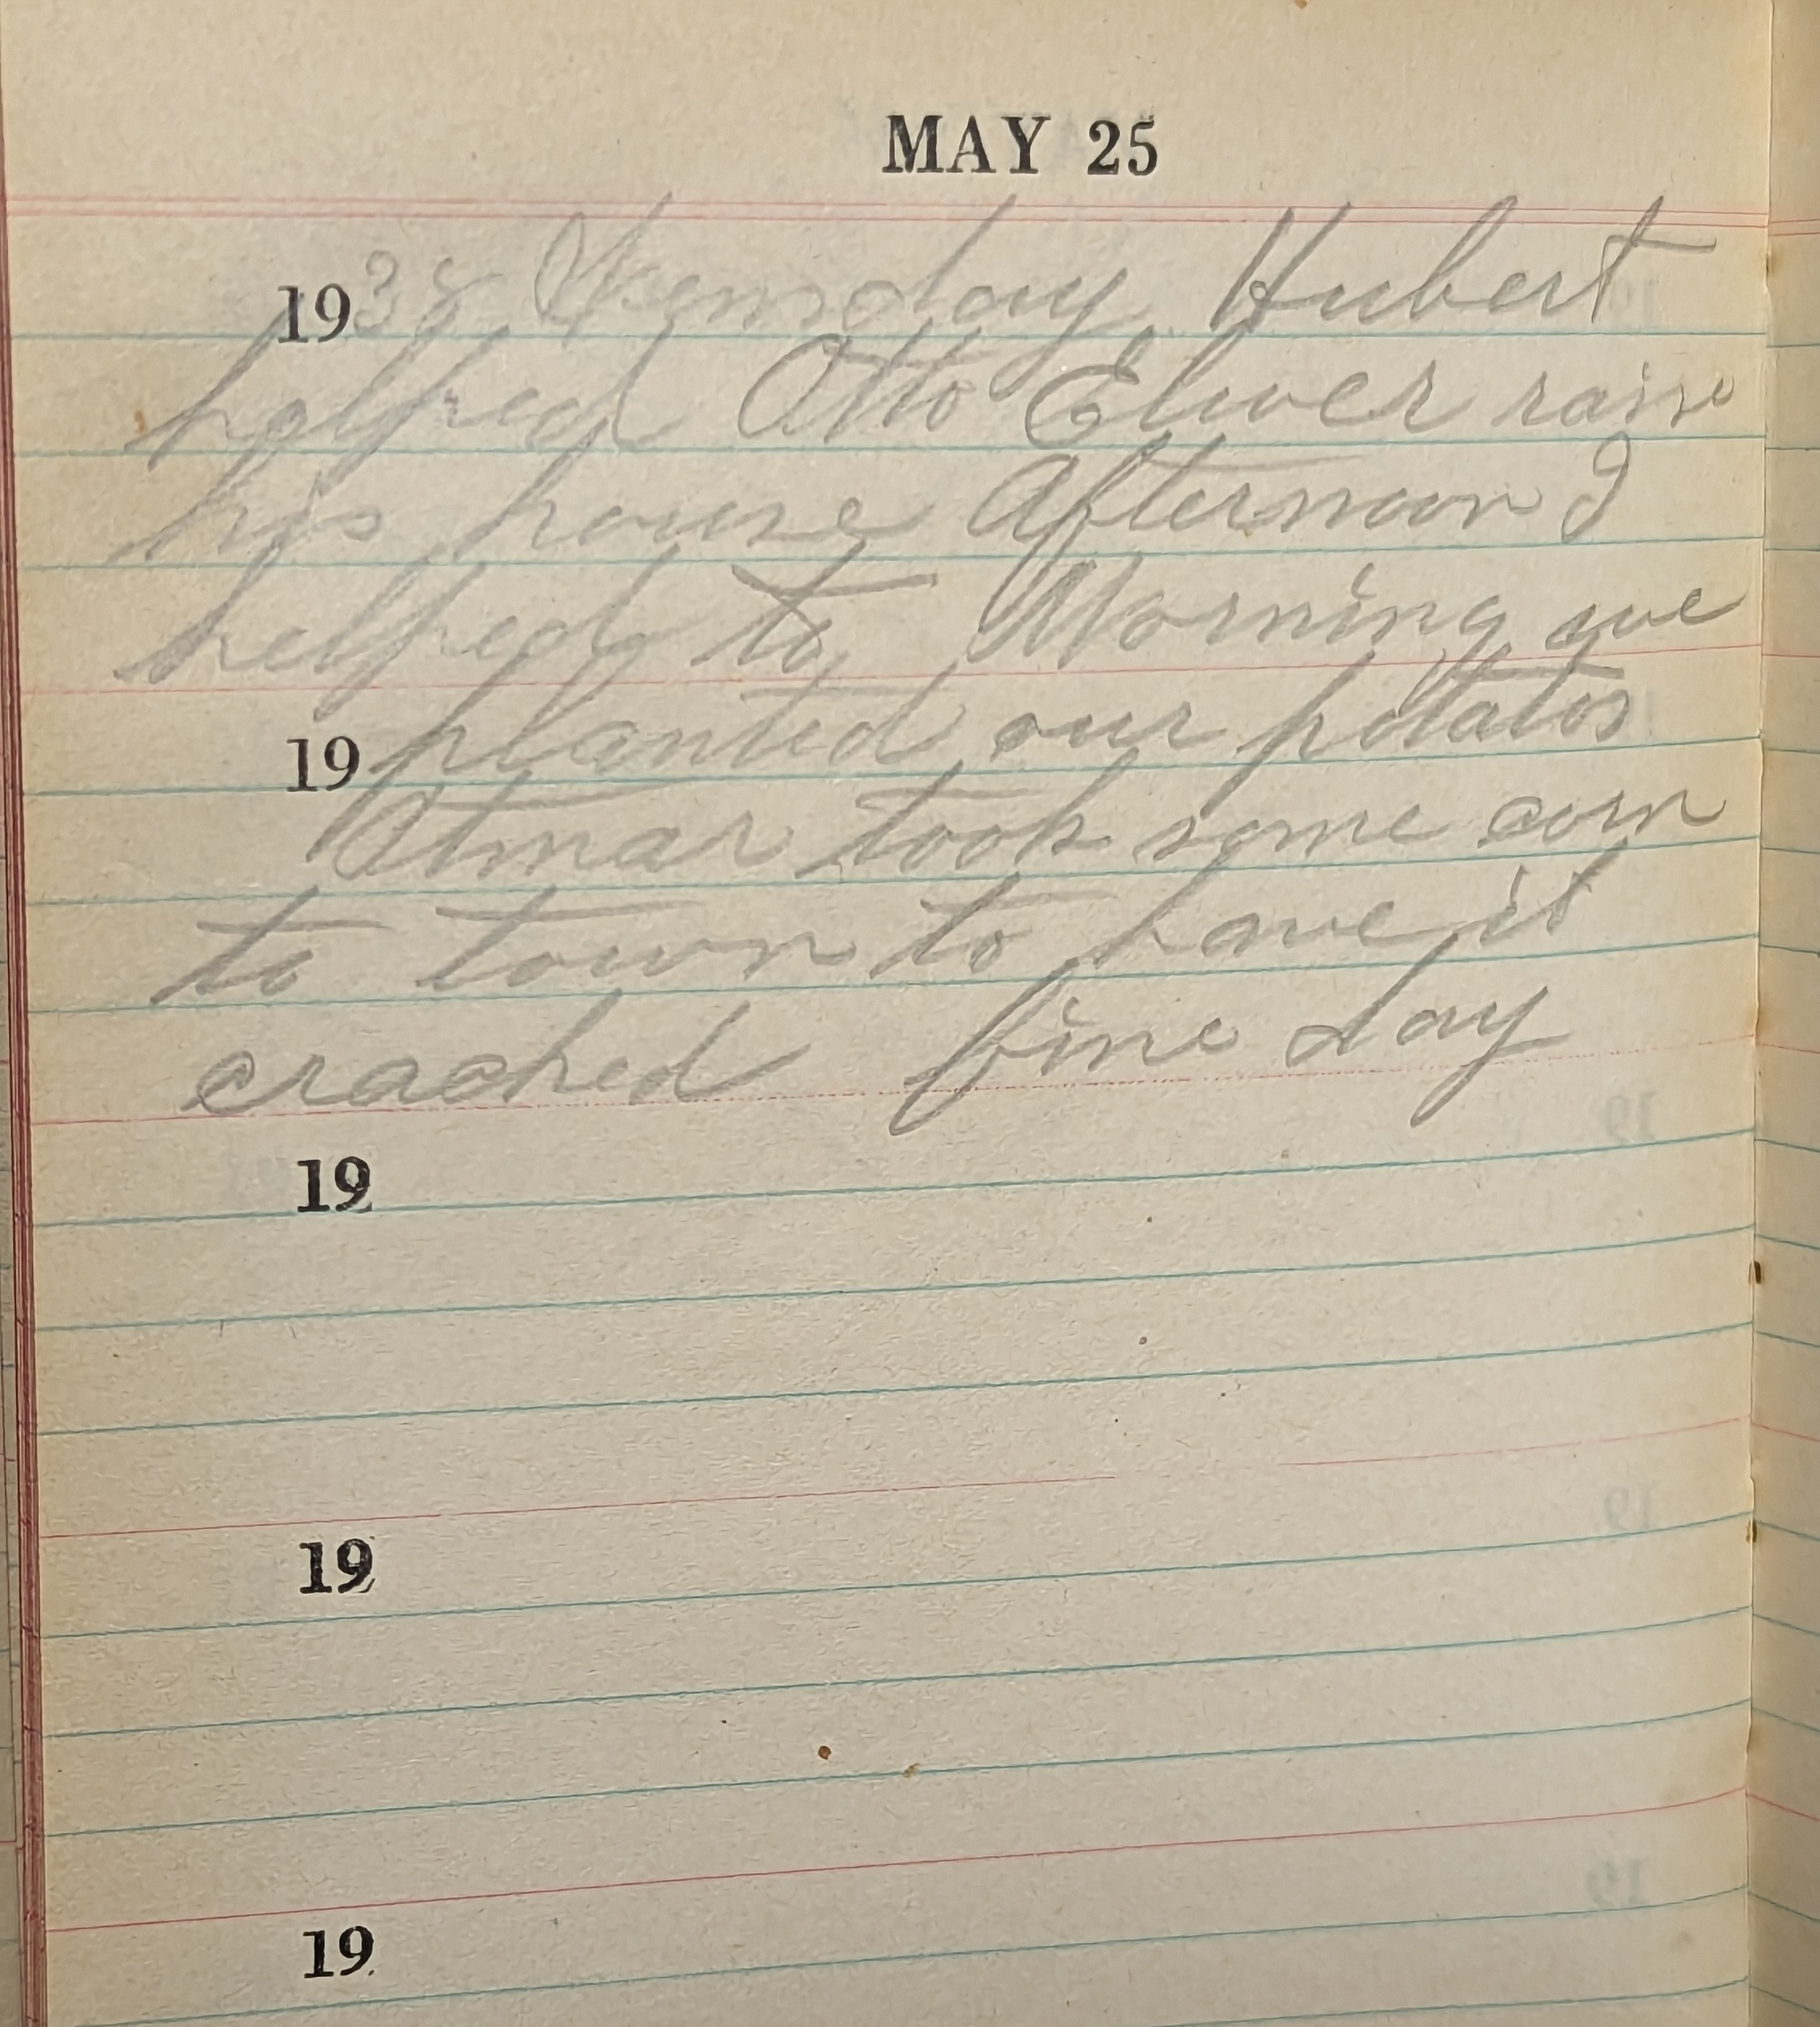 MAY 25
1938 Wensday Hubert
helped Otto Eliver raise
his house Afternoon I
helped to Morning we
19 planted our potatos
Otmar took some corn
to town to have it
cracked fine day
19
19
19